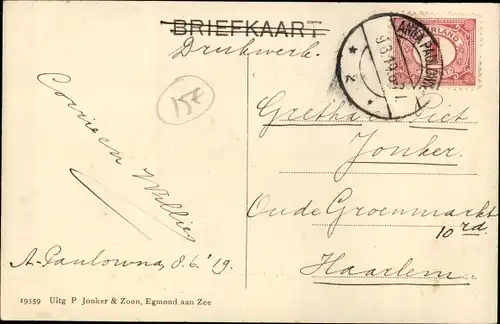 BRIEFKAART
Drukwerk.
ANNA PAULOWNA
9.6.19.8-
2
15€
Corrie en Willie
A-Paulowna, 8.6.'19.
Gretha en Piet
Jonker.
Oude Groenmarkt
10 rd.
Haarlem.
19559 Uitg P Jonker & Zoon, Egmond aan Zee